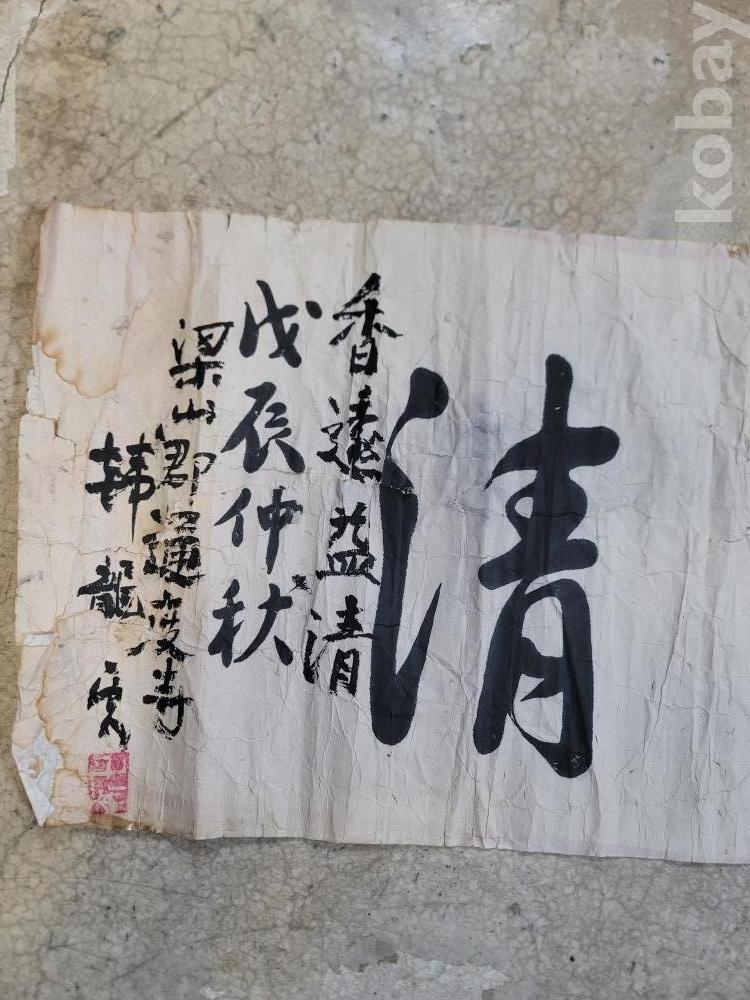 清
香遠益清
戊辰仲秋
梁山郡通度寺
韓龍雲
kobay